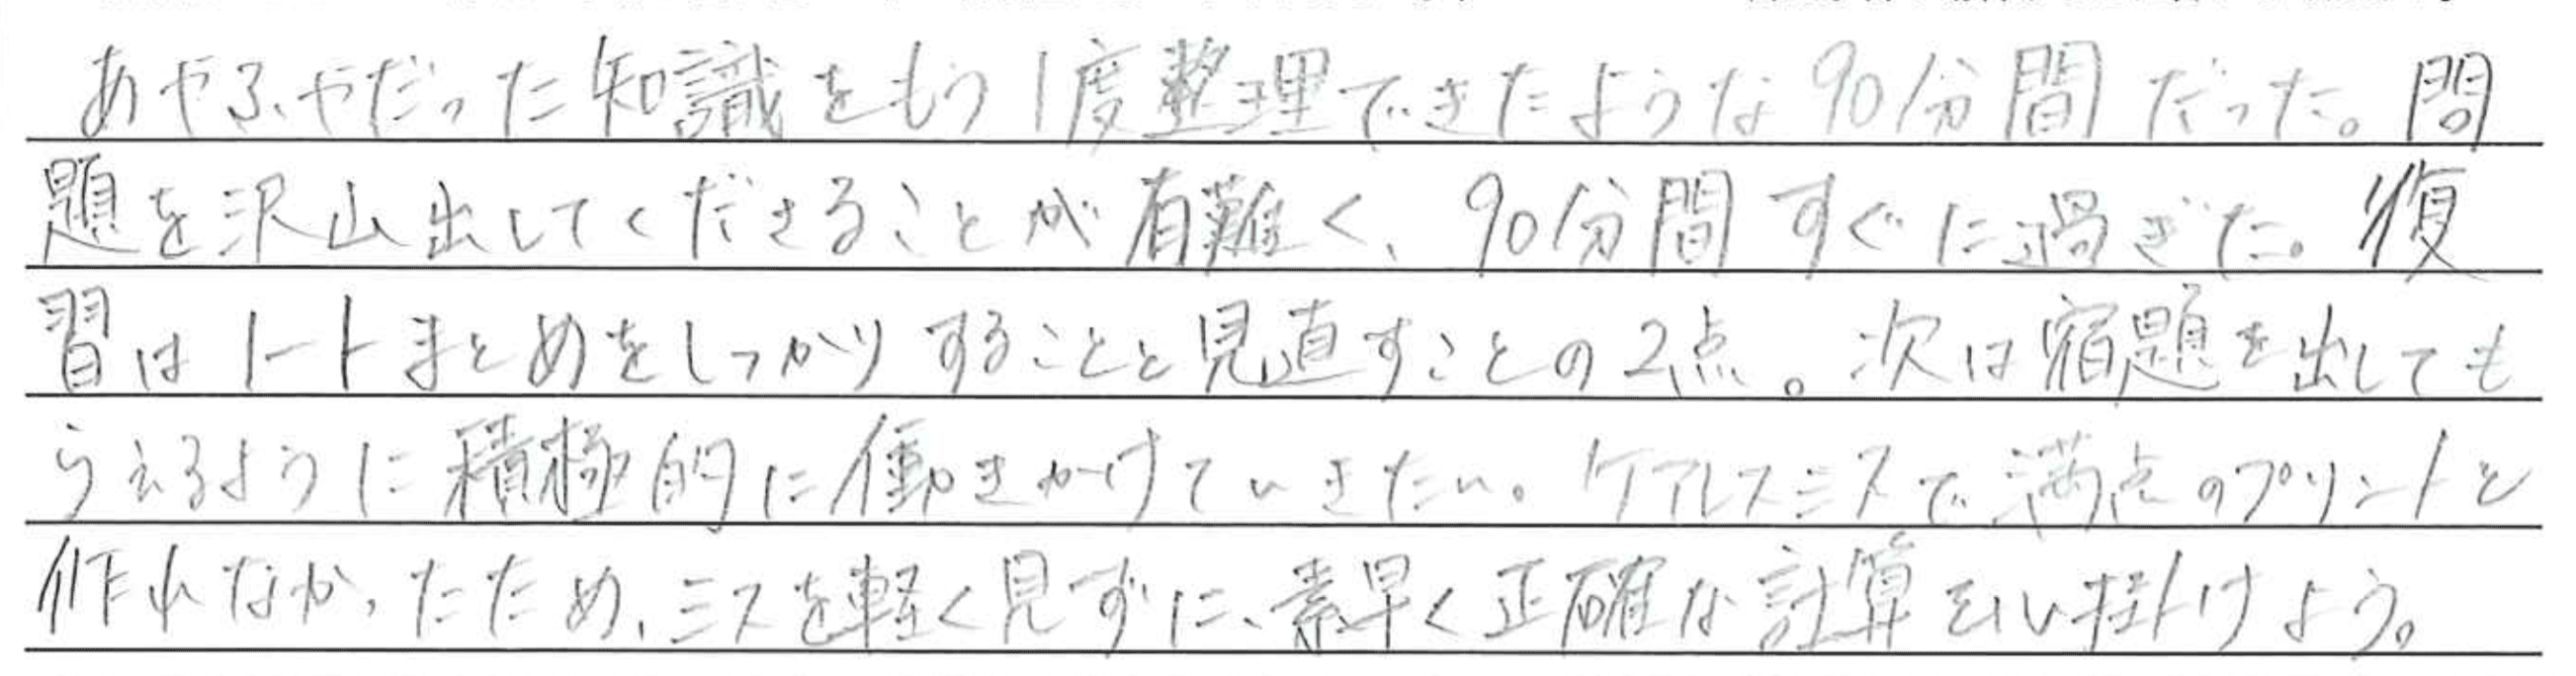 あやふやだった知識をもう1度整理できたような90分間だった。問
題を沢山出してくださることが有難く、90分間すぐに過ぎた。復
習はノートまとめをしっかりすることと見直すことの2点。次は宿題を出しても
らえるように積極的に働きかけていきたい。ケアレスミスで満点のプリントを
作れなかったため、ミスを軽く見ずに、素早く正確な計算を心掛けよう。